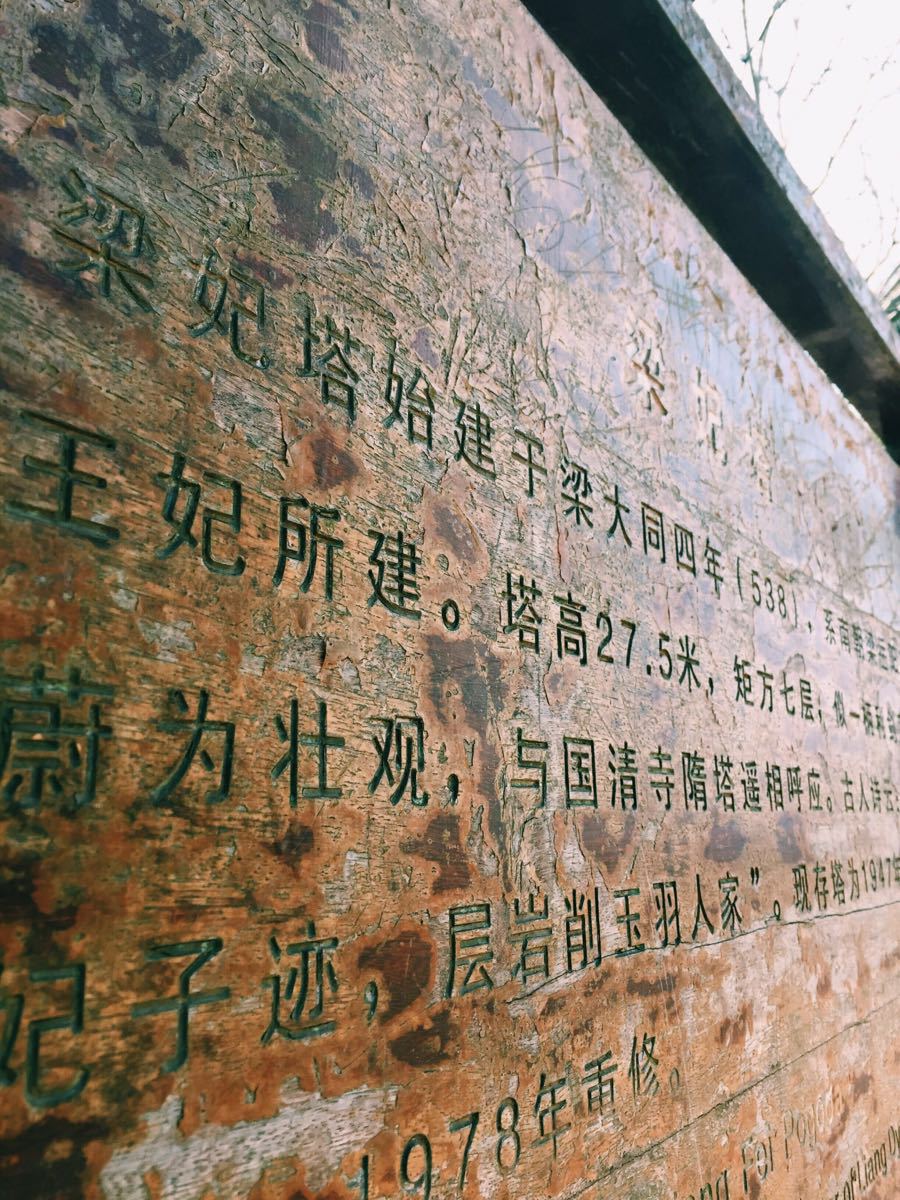 梁妃塔
梁妃塔始建于梁大同四年（538），系南朝梁岳阳
王妃所建。塔高27.5米，矩方七层，似一柄利剑
蔚为壮观，与国清寺隋塔遥相呼应。古人诗云：
妃子迹，层岩削玉羽人家”。现存塔为1947年
1978年重修。
Fei Pagoda
Liang Dy